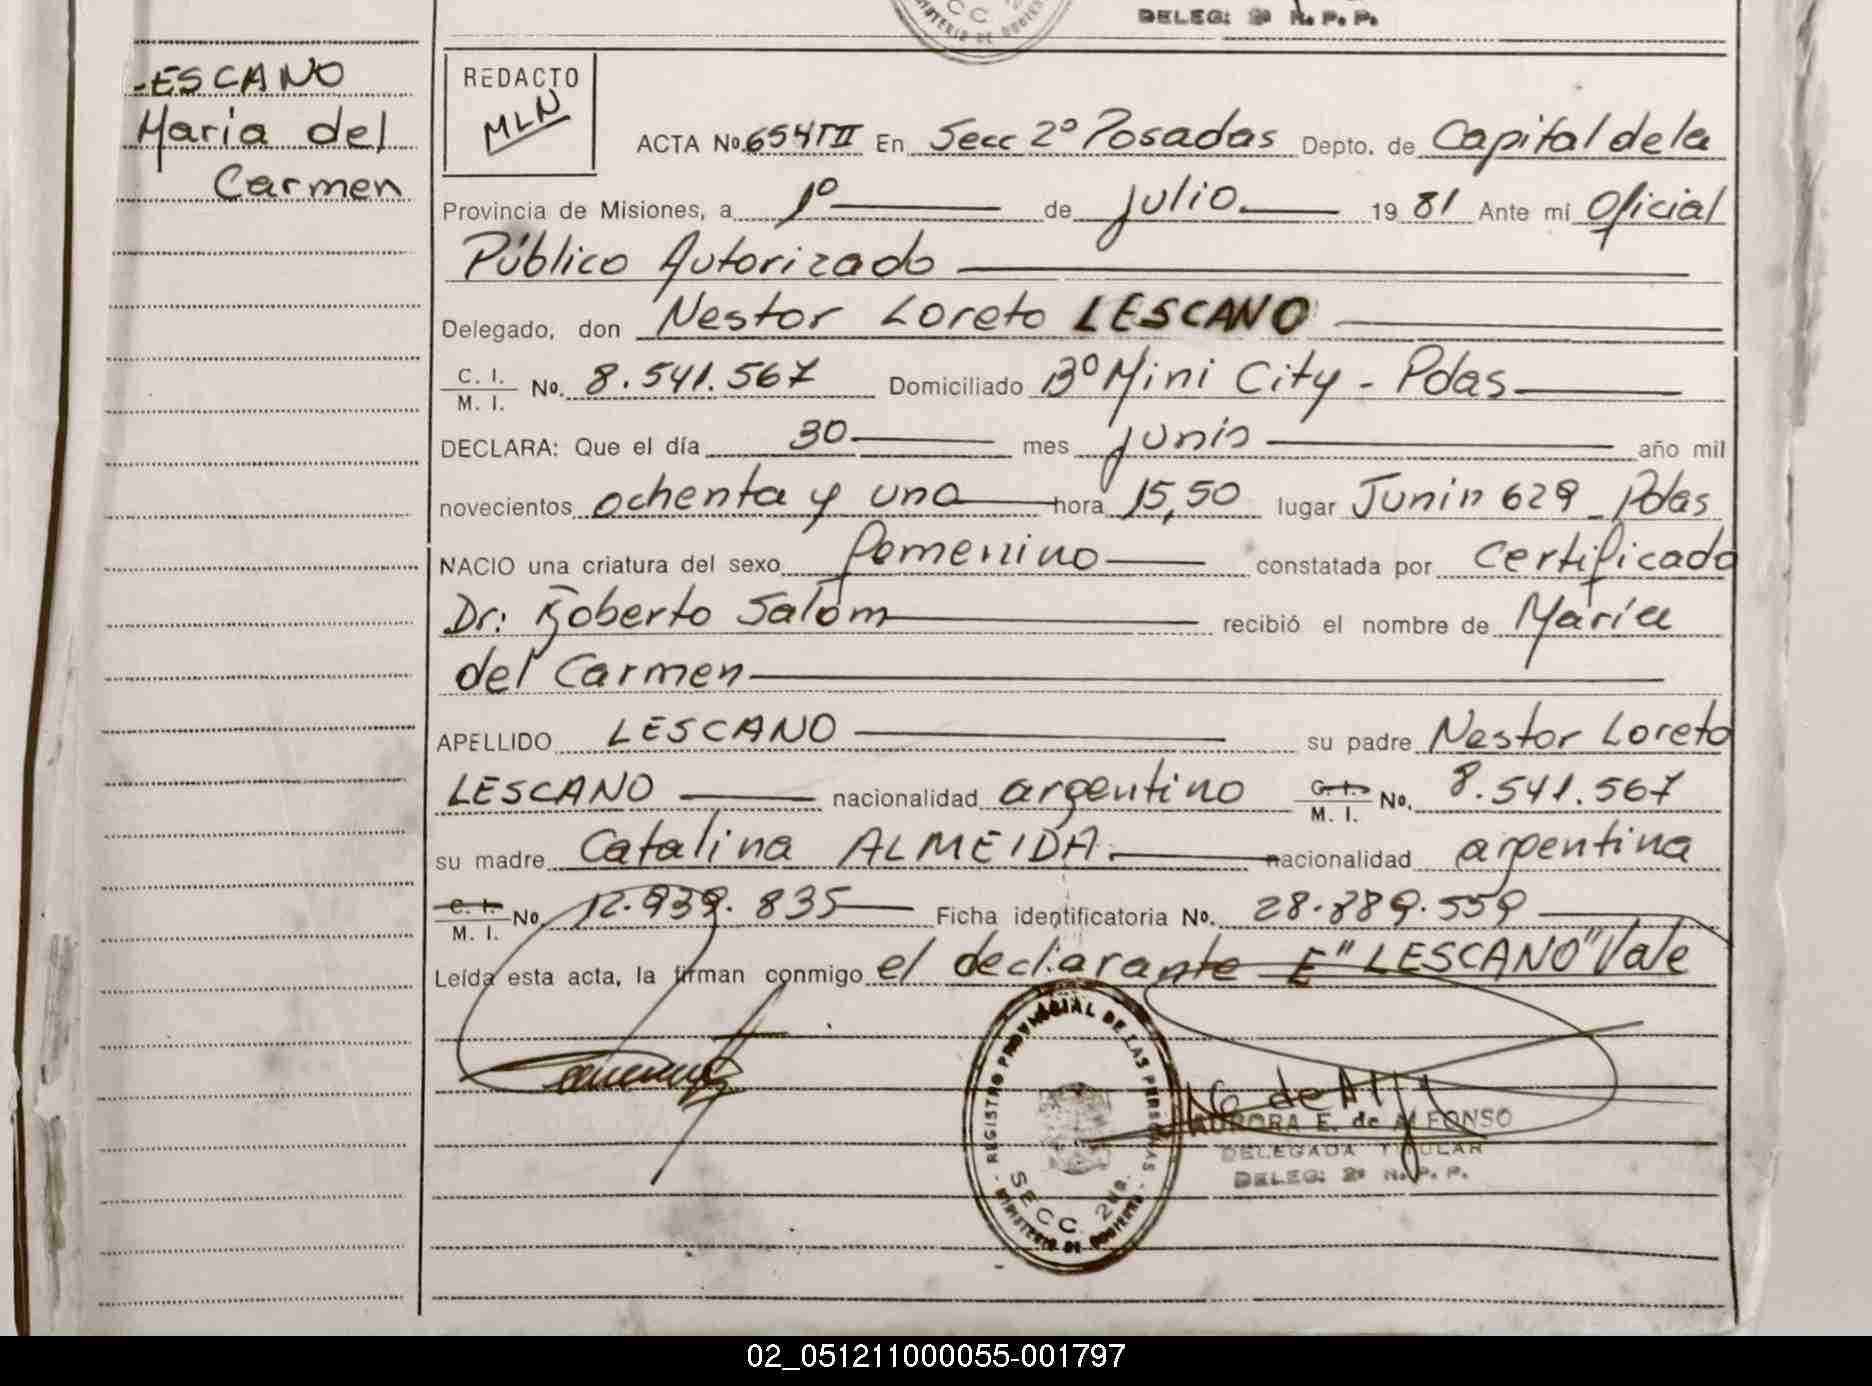 DELEG: 2ª R. P. P.
LESCANO
Maria del
Carmen
REDACTO
MLN
ACTA No. 654 TII En Secc 2º Posadas Depto. de Capital de la
Provincia de Misiones, a 1º de julio 1981 Ante mí Oficial
Público Autorizado
Delegado, don Nestor Loreto LESCANO
C. I. / M. I. No. 8.541.567 Domiciliado Bº Mini City - Pdas
DECLARA: Que el día 30 mes junio año mil
novecientos ochenta y uno hora 15,50 lugar Junin 629 - Pdas
NACIO una criatura del sexo femenino constatada por certificado
Dr: Roberto Salom recibió el nombre de María
del Carmen
APELLIDO LESCANO su padre Nestor Loreto
LESCANO nacionalidad argentino C. I. / M. I. No. 8.541.567
su madre Catalina ALMEIDA nacionalidad argentina
C. I. / M. I. No. 12.939.835 Ficha identificatoria No. 28.889.559
Leída esta acta, la firman conmigo el declarante E" LESCANO" Vale
REGISTRO PROVINCIAL DE LAS PERSONAS
SECC. 2da.
MINISTERIO DE GOBIERNO
AURORA E. de ALFONSO
DELEGADA TITULAR
DELEG: 2ª R. P. P.
02_051211000055-001797